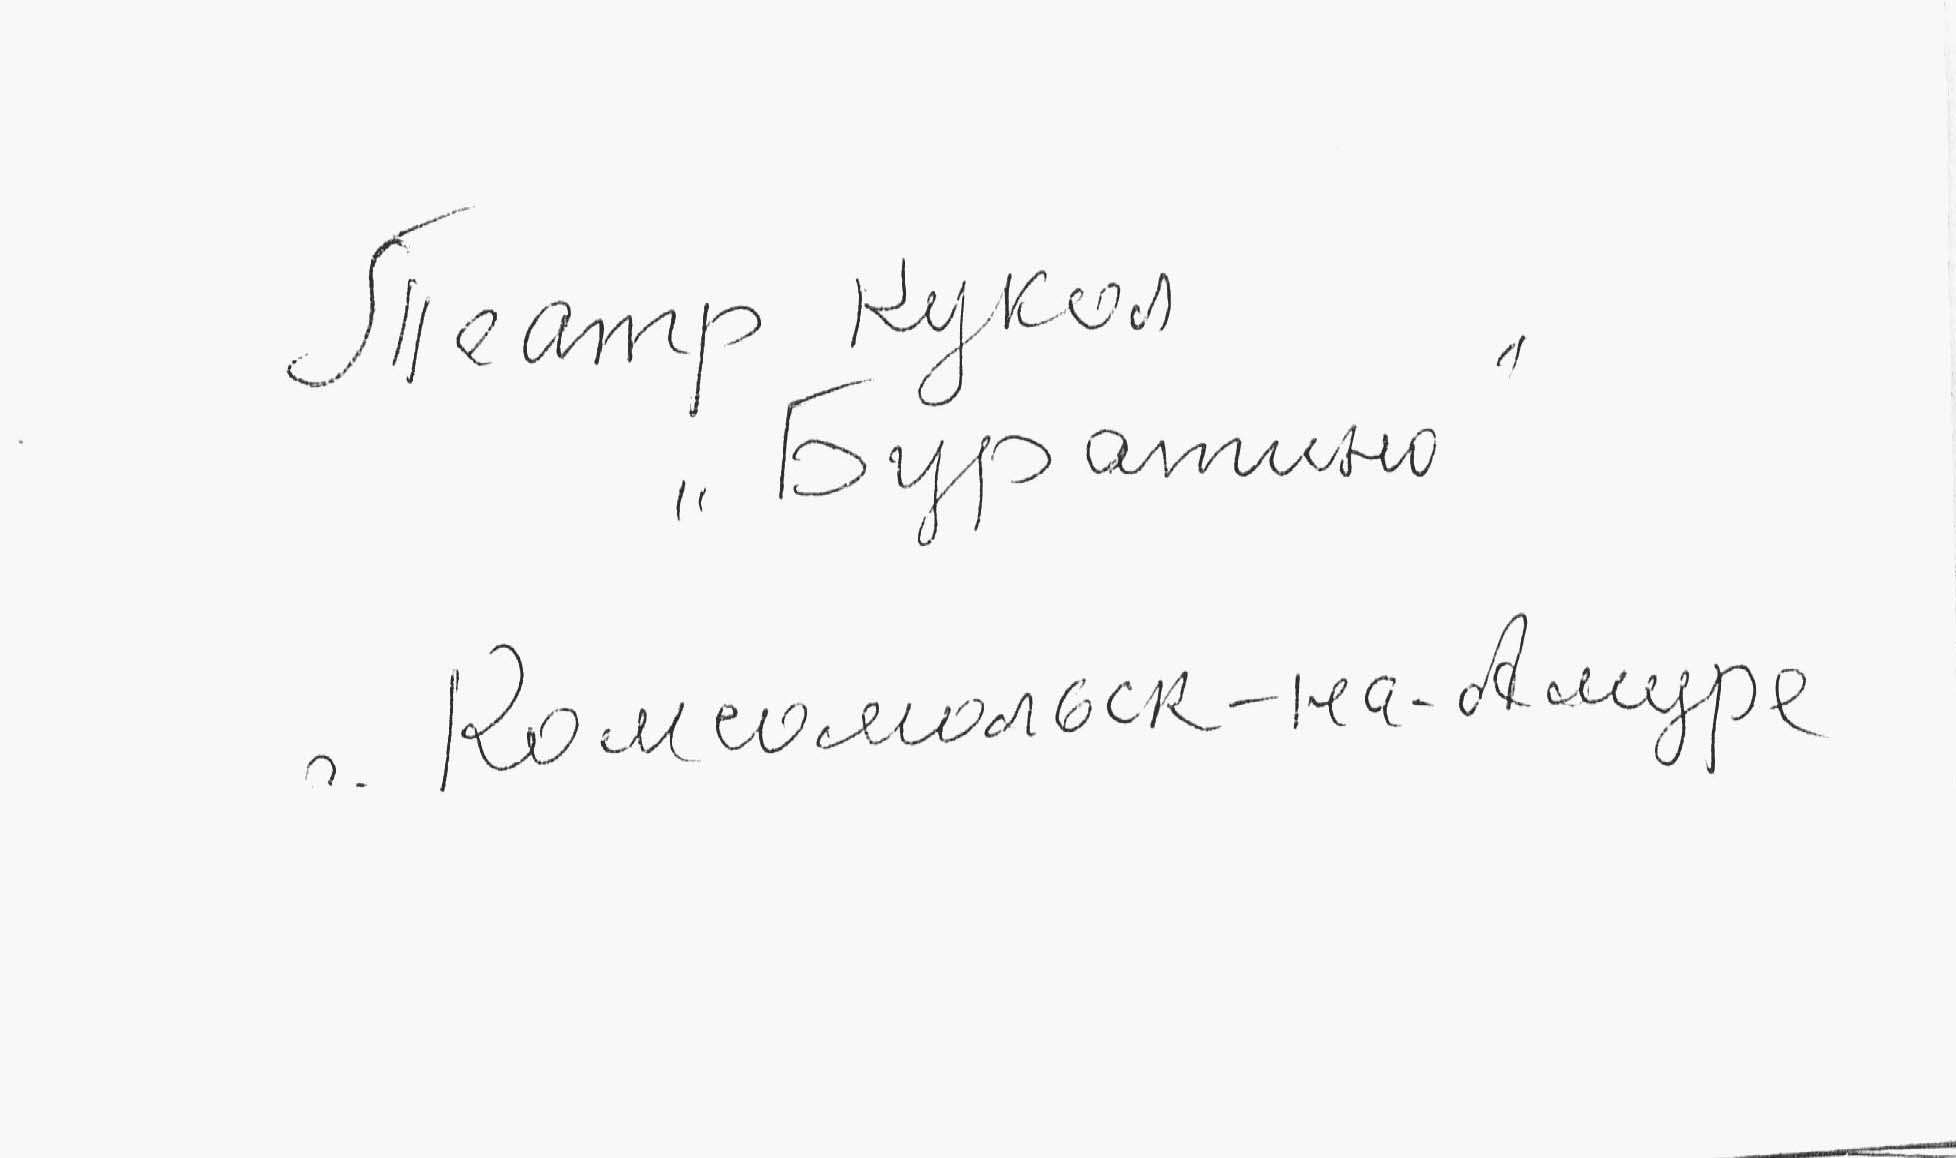 Театр кукол
„Буратино"
г. Комсомольск-на-Амуре